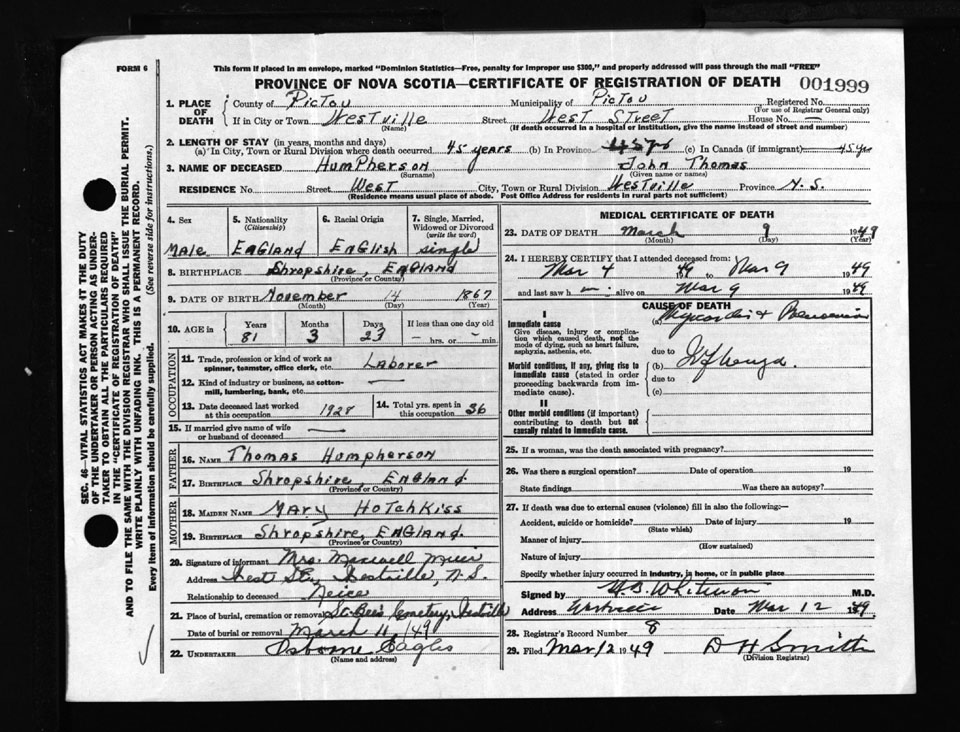 FORM 6
This form if placed in an envelope, marked "Dominion Statistics—Free, penalty for improper use $300," and properly addressed will pass through the mail "FREE"
PROVINCE OF NOVA SCOTIA—CERTIFICATE OF REGISTRATION OF DEATH
001999
SEC. 46—VITAL STATISTICS ACT MAKES IT THE DUTY
OF THE UNDERTAKER OR PERSON ACTING AS UNDER-
TAKER TO OBTAIN ALL THE PARTICULARS REQUIRED
IN THE "CERTIFICATE OF REGISTRATION OF DEATH"
AND TO FILE THE SAME WITH THE DIVISION REGISTRAR WHO SHALL ISSUE THE BURIAL PERMIT.
WRITE PLAINLY WITH UNFADING INK. THIS IS A PERMANENT RECORD.
Every item of information should be carefully supplied. (See reverse side for instructions.)
1. PLACE OF DEATH
County of Pictou Municipality of Pictou Registered No.
(For use of Registrar General only)
If in City or Town Westville Street West Street House No. —
(Name) (If death occurred in a hospital or institution, give the name instead of street and number)
2. LENGTH OF STAY (in years, months and days)
(a) In City, Town or Rural Division where death occurred 45 years (b) In Province 45 yrs (c) In Canada (if immigrant) 45 yrs
3. NAME OF DECEASED Humpherson John Thomas
(Surname) (Given name or names)
RESIDENCE No. Street West City, Town or Rural Division Westville Province N.S.
(Residence means usual place of abode. Post Office Address for residents in rural parts not sufficient)
4. Sex
Male
5. Nationality
(Citizenship)
England
6. Racial Origin
English
7. Single, Married, Widowed or Divorced
(write the word)
single
8. BIRTHPLACE Shropshire, England
(Province or Country)
9. DATE OF BIRTH November 14 1867
(Month) (Day) (Year)
10. AGE in
Years Months Days If less than one day old
81 3 23 — hrs. or — min.
OCCUPATION
11. Trade, profession or kind of work as
spinner, teamster, office clerk, etc. Laborer
12. Kind of industry or business, as cotton-
mill, lumbering, bank, etc.
13. Date deceased last worked
at this occupation 1928
14. Total yrs. spent in
this occupation 36
15. If married give name of wife
or husband of deceased —
FATHER
16. NAME Thomas Humpherson
17. BIRTHPLACE Shropshire, England.
(Province or Country)
MOTHER
18. MAIDEN NAME Mary Hotchkiss
19. BIRTHPLACE Shropshire, England.
(Province or Country)
20. Signature of informant Mrs. Maxwell Muir
Address West St., Westville, N.S.
Relationship to deceased Neice
21. Place of burial, cremation or removal St. Bee's Cemetery, Westville
Date of burial or removal March 11, 1949
22. UNDERTAKER Osborne Eagles
(Name and address)
MEDICAL CERTIFICATE OF DEATH
23. DATE OF DEATH March 9 1949
(Month) (Day) (Year)
24. I HEREBY CERTIFY that I attended deceased from:
Mar 4 1949 to Mar 9 1949
and last saw h im alive on Mar 9 1949
CAUSE OF DEATH
I
Immediate cause
Give disease, injury or complica-
tion which caused death, not the
mode of dying, such as heart failure,
asphyxia, asthenia, etc.
(a)
due to
Morbid conditions, if any, giving rise to
immediate cause (stated in order
proceeding backwards from im-
mediate cause).
(b)
due to
(c)
II
Other morbid conditions (if important)
contributing to death but not
causally related to immediate cause.
25. If a woman, was the death associated with pregnancy?
26. Was there a surgical operation? Date of operation 19
State findings Was there an autopsy?
27. If death was due to external causes (violence) fill in also the following:—
Accident, suicide or homicide? Date of injury 19
(State which)
Manner of injury
(How sustained)
Nature of injury
Specify whether injury occurred in industry, in home, or in public place
Signed by M.D.
Address Westville Date Mar 12 1949.
28. Registrar's Record Number 8
29. Filed Mar 12 1949 D H Smith
(Division Registrar)